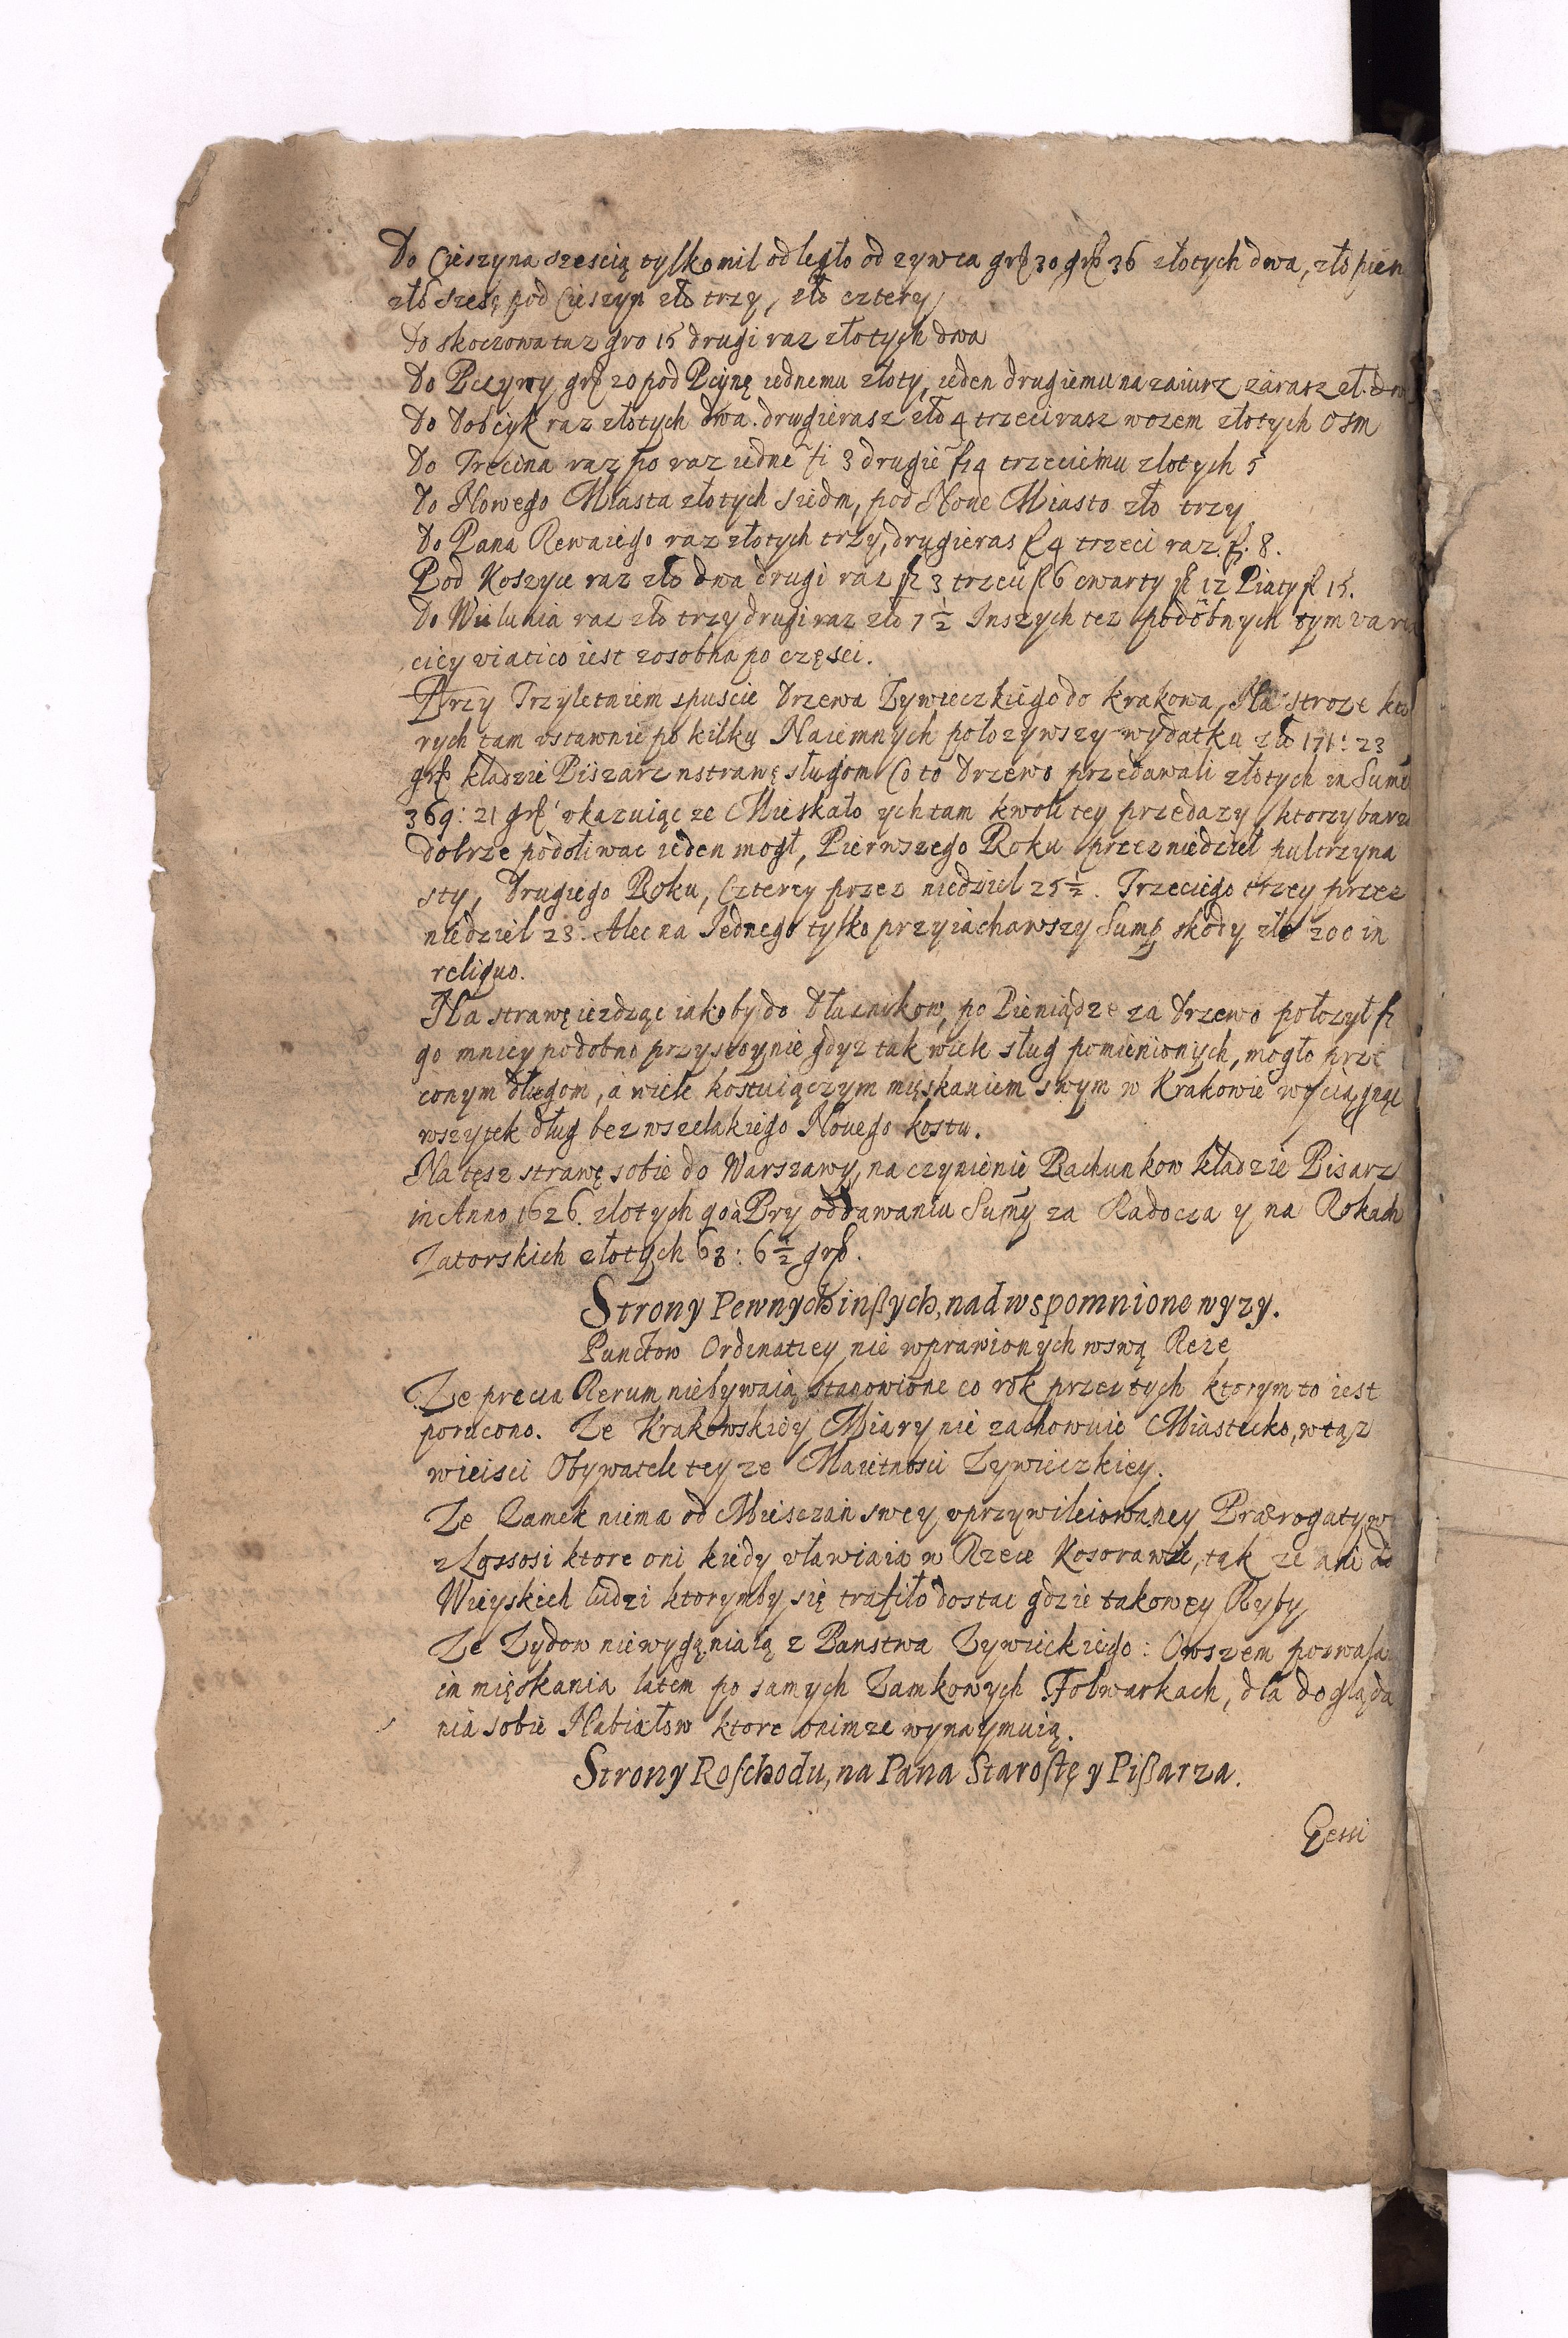 Do Cieszyna sżescią tylko mil odległo od zywca grß 30 grß 36 złotych dwa, zło pień
zło szesc pod Cieszyn zło trzy, zło cztery
Do skoczowa raz gro 15 drugi raz złotych dwa
Do Pczyny grß 20 pod Pcżynę iednemu złoty, ieden drugiemu na zaiurz zarasz zł. dwa
Do Dobcyk raz złotych dwa. drugierasz zło 4 trzeci rasz wozem złotych osm
Do Trecina raz po raz iedne fl 3 drugie fl 4 trzeciemu złotych 5
Do Nowego Miasta złotych siedm, pod Nowe Miasto zło trzy
Do Pana Rewaiego raz złotych trzy, drugieras fl 4 trzeci raz. fl. 8.
Pod Koszyce raz zło dwa drugi raz fl 3 trzeci fl 6 cwarty fl 12 Piaty fl 15.
Do Wielunia raz zło trzy drugi raz zło 7 ½ Inszych tez podobnych tym
ciey viatico iest zosobna po części.
Przy Trzyletniem spuscie Drzewa Zywieczkiego do Krakowa, Na stroze kto
rych tam vstawnie po kilku Naiemnych położywszy wydatku zło 171: 23
grß kładzie Pisarz nstrawę sługom Co to Drzewo przedawali złotych in Sum̃
369: 21 grß vkazuiąc ze Mieskało ych tam kwoli tey przedazy ktorzy barz
dobrze podoliwac ieden mogł, Pierwszego Roku przez niedziel pultrzyna
sty, Drugiego Roku, Czterey przez niedziel 25 ½. Trzeciego trzey przez
niedziel 23. Alec na Jednego tylko przyiachawszy Sumę skody zło 200 in
reliquo.
Na strawę iezdząc iakoby do Dłaznikow, po Pieniądze za Drzewo położył fl
go mniey podobno przystoynie gdyz tak wiele sług pomienionych, mogło prze
conym długom, á wiele kostuiączym mięskaniem swym w Krakowie wyciągnąc
wszytek dług bez wszelakiego Nowego kostu.
Na tęsz strawę sobie do Warszawy, na czynienie Rachunkow kładzie Pisarz
in Anno 1626. złotych 90 a Pry oddawaniu Sumy za Radocza y na Rokach
Zatorskich złotych 63: 6 ½ grß.
Strony Pewnych inßych, nad wspomnione wyzy.
Punctow Ordinatiey nie wprawionych wswą Reze
Ze precia Rerum niebywaią stanowione co rok przez tych ktorym to iest
porucono. Ze Krakowskiey Miary nie zachowuie Miastecko, wtąz
wieisci Obywatele tey ze Maietnosci Zywieczkiey.
Ze Zamek niema od Miesczan swey vprzywileiowaney Prærogatyw
z Lossosi ktore oni kiedy vławiaią w Rzece Kosorawie, tak ze ani do
Wieyskich ludzi ktorymby się trafiło dostac gdzie takowey Ryby
Ze Zydow niewyganiaią z Panstwa Zywieckiego: Owszem pozwala
im mięskania latem po samych Zamkowych Folwarkach, dla dogląda
nia sobie Nabiałow ktore onimze wynaymuią.
Strony Roschodu, na Pana Starostę y Pißarza.